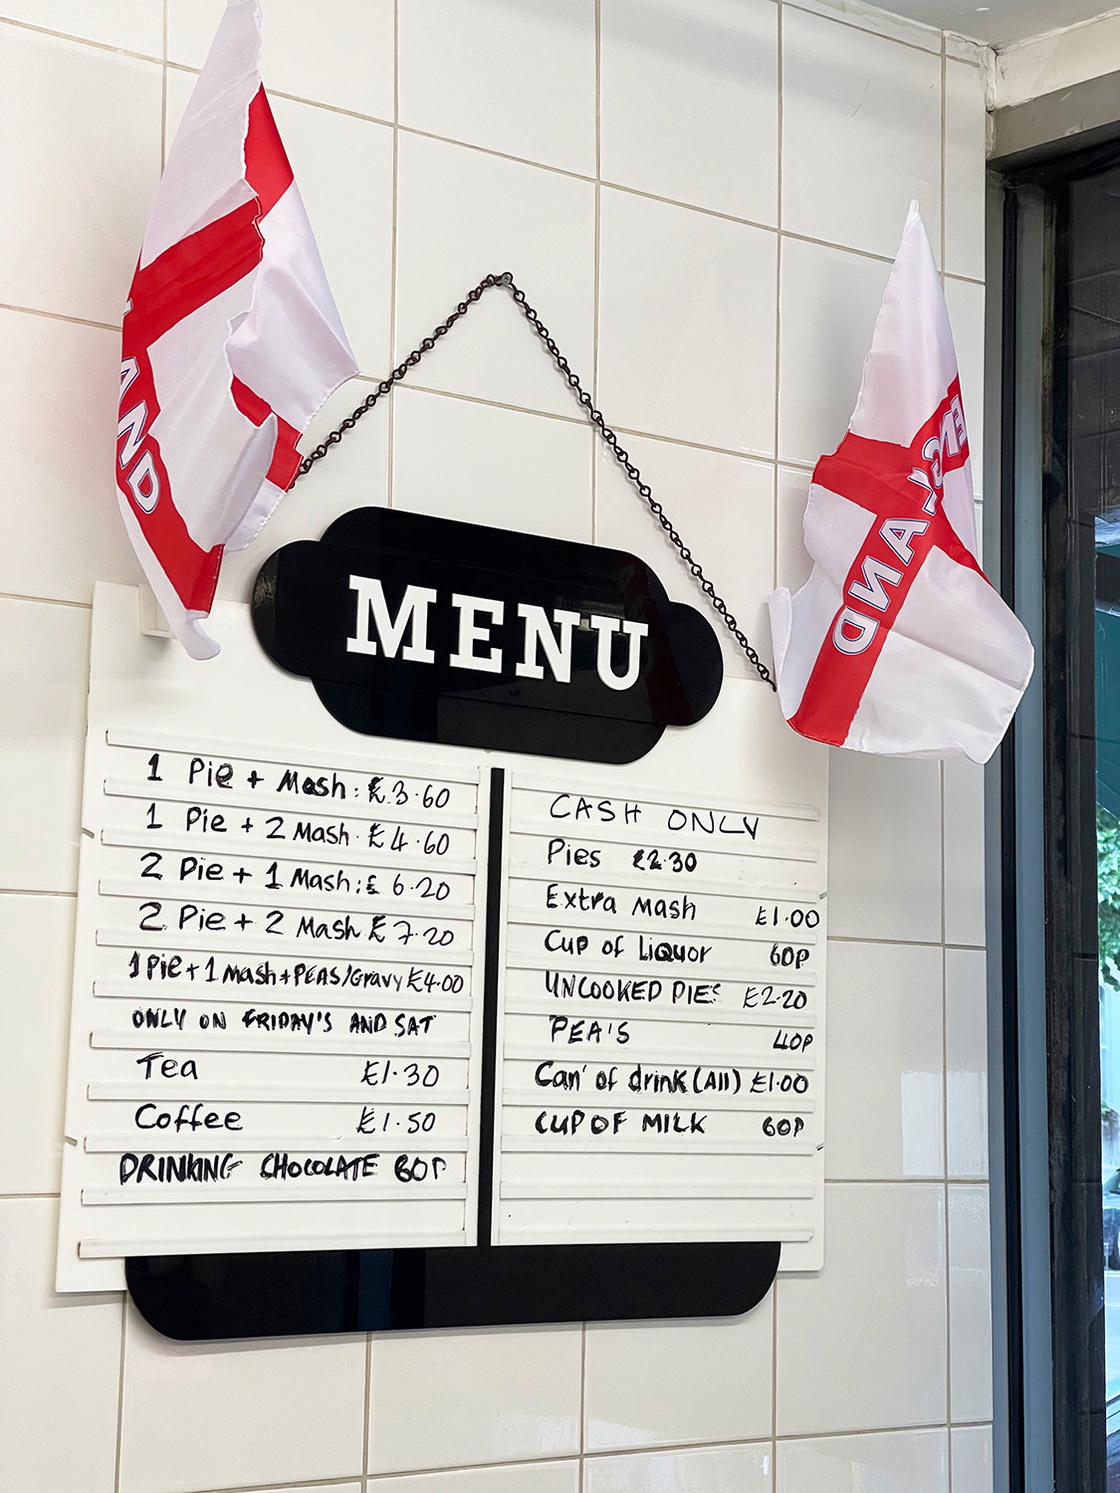 AND
ENGLAND
MENU
1 Pie + Mash : £3.60
1 Pie + 2 Mash. £4.60
2 Pie + 1 Mash : £ 6.20
2 Pie + 2 Mash £7.20
1 Pie + 1 Mash + PEAS/Gravy £4.00
ONLY ON FRIDAY'S AND SAT
Tea £1.30
Coffee £1.50
DRINKING CHOCOLATE 60P
CASH ONLY
Pies £2.30
Extra Mash £1.00
Cup of Liquor 60P
UNCOOKED PIES £2.20
PEA'S 40P
Can' of drink (All) £1.00
CUP OF MILK 60P